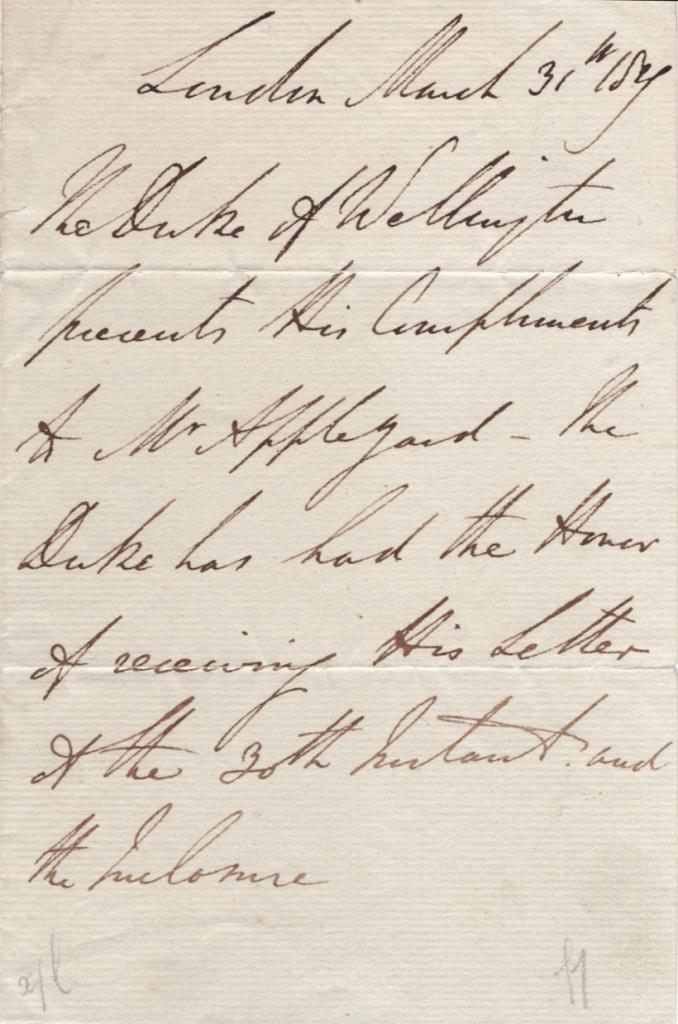 London March 31st 184
The Duke of Wellington
presents His Compliments
to Mr Appleyard - The
Duke has had the Honor
of receiving His Letter
of the 30th Instant. and
the Inclosure